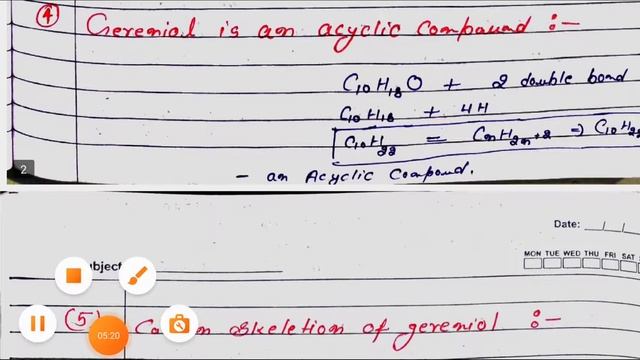 (4) Gerenial is an acyclic compound :-
C10H18O + 2 double bond
C10H18 + 4H
C10H22 = CnH2n+2 => C10H22
- an Acyclic Compound.
2
Date: __/__/
MON TUE WED THU FRI SAT
(5) skeletion of gereniol :-
05:20